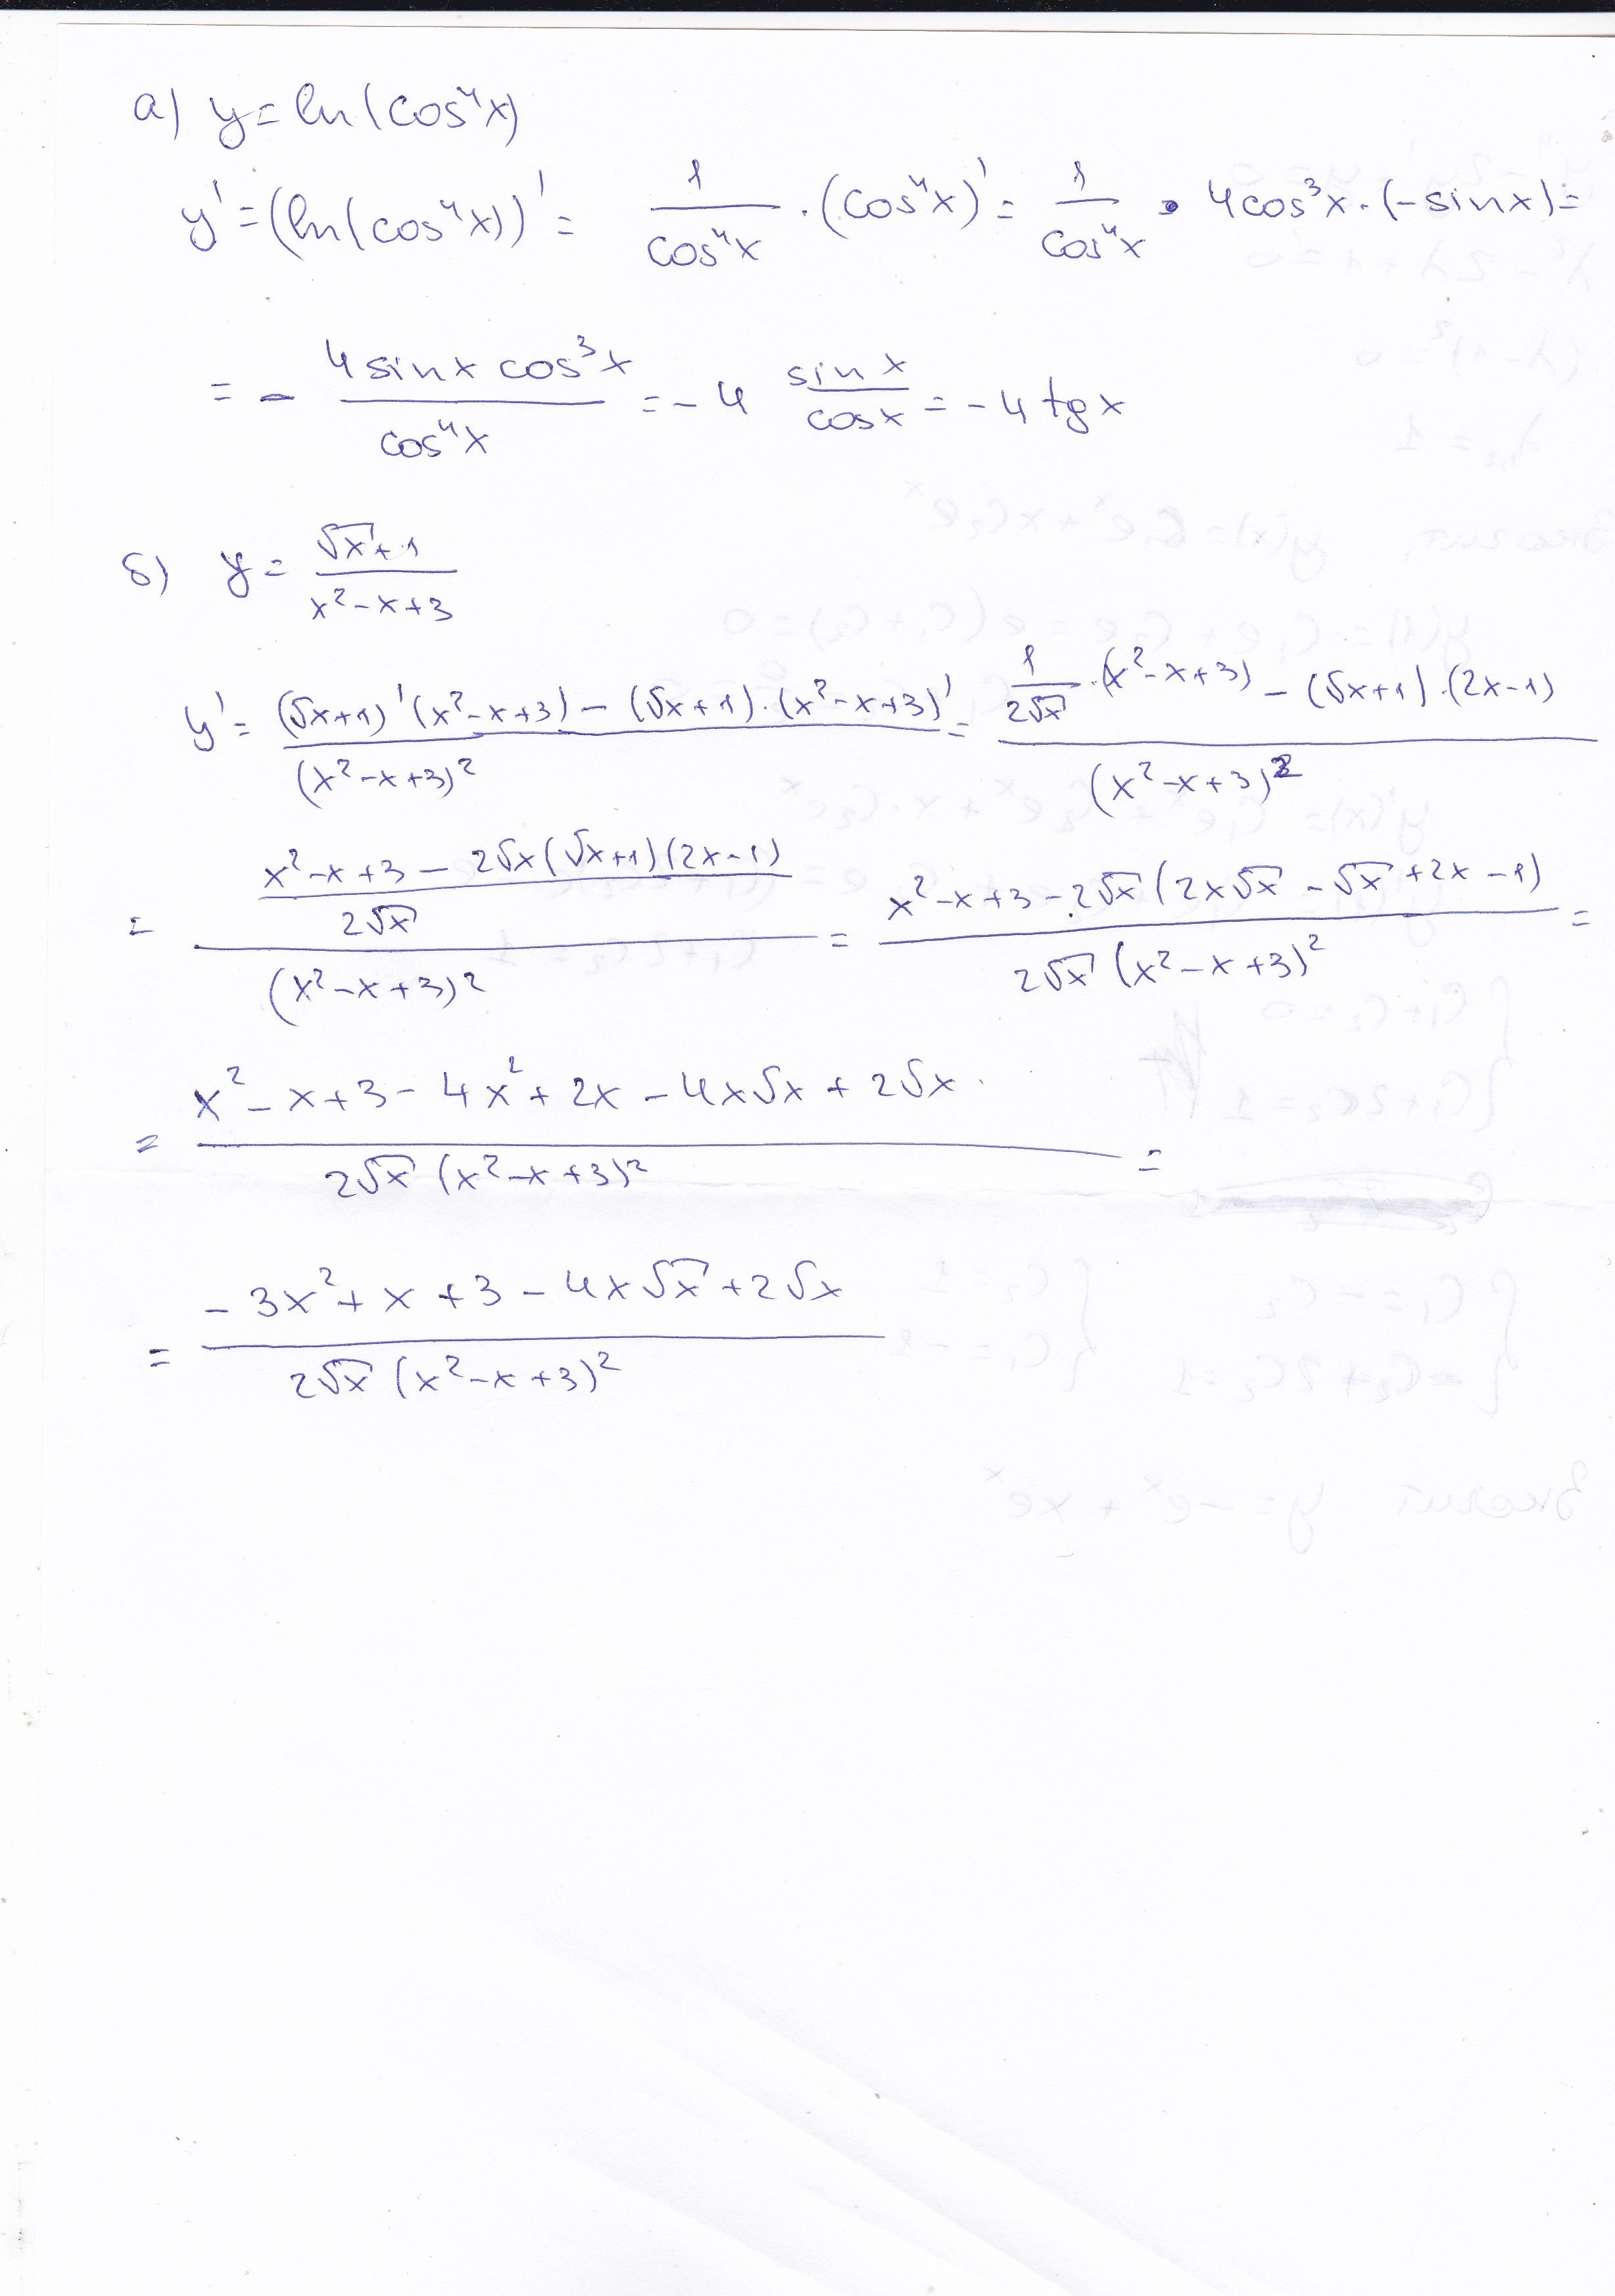 а) y = ln(cos⁴x)
y' = (ln(cos⁴x))' = 1/cos⁴x · (cos⁴x)' = 1/cos⁴x · 4cos³x · (-sinx) =
= - 4sinx cos³x / cos⁴x = -4 sinx/cosx = -4 tgx
б) y = (√x + 1)/(x² - x + 3)
y' = ((√x+1)'(x²-x+3) - (√x+1)·(x²-x+3)')/(x²-x+3)² = (1/(2√x) · (x²-x+3) - (√x+1)·(2x-1))/(x²-x+3)²
= ((x²-x+3 - 2√x(√x+1)(2x-1))/(2√x))/(x²-x+3)² = (x²-x+3-2√x(2x√x - √x + 2x - 1))/(2√x(x²-x+3)²) =
= (x² - x + 3 - 4x² + 2x - 4x√x + 2√x)/(2√x(x²-x+3)²) =
= (-3x² + x + 3 - 4x√x + 2√x)/(2√x(x²-x+3)²)